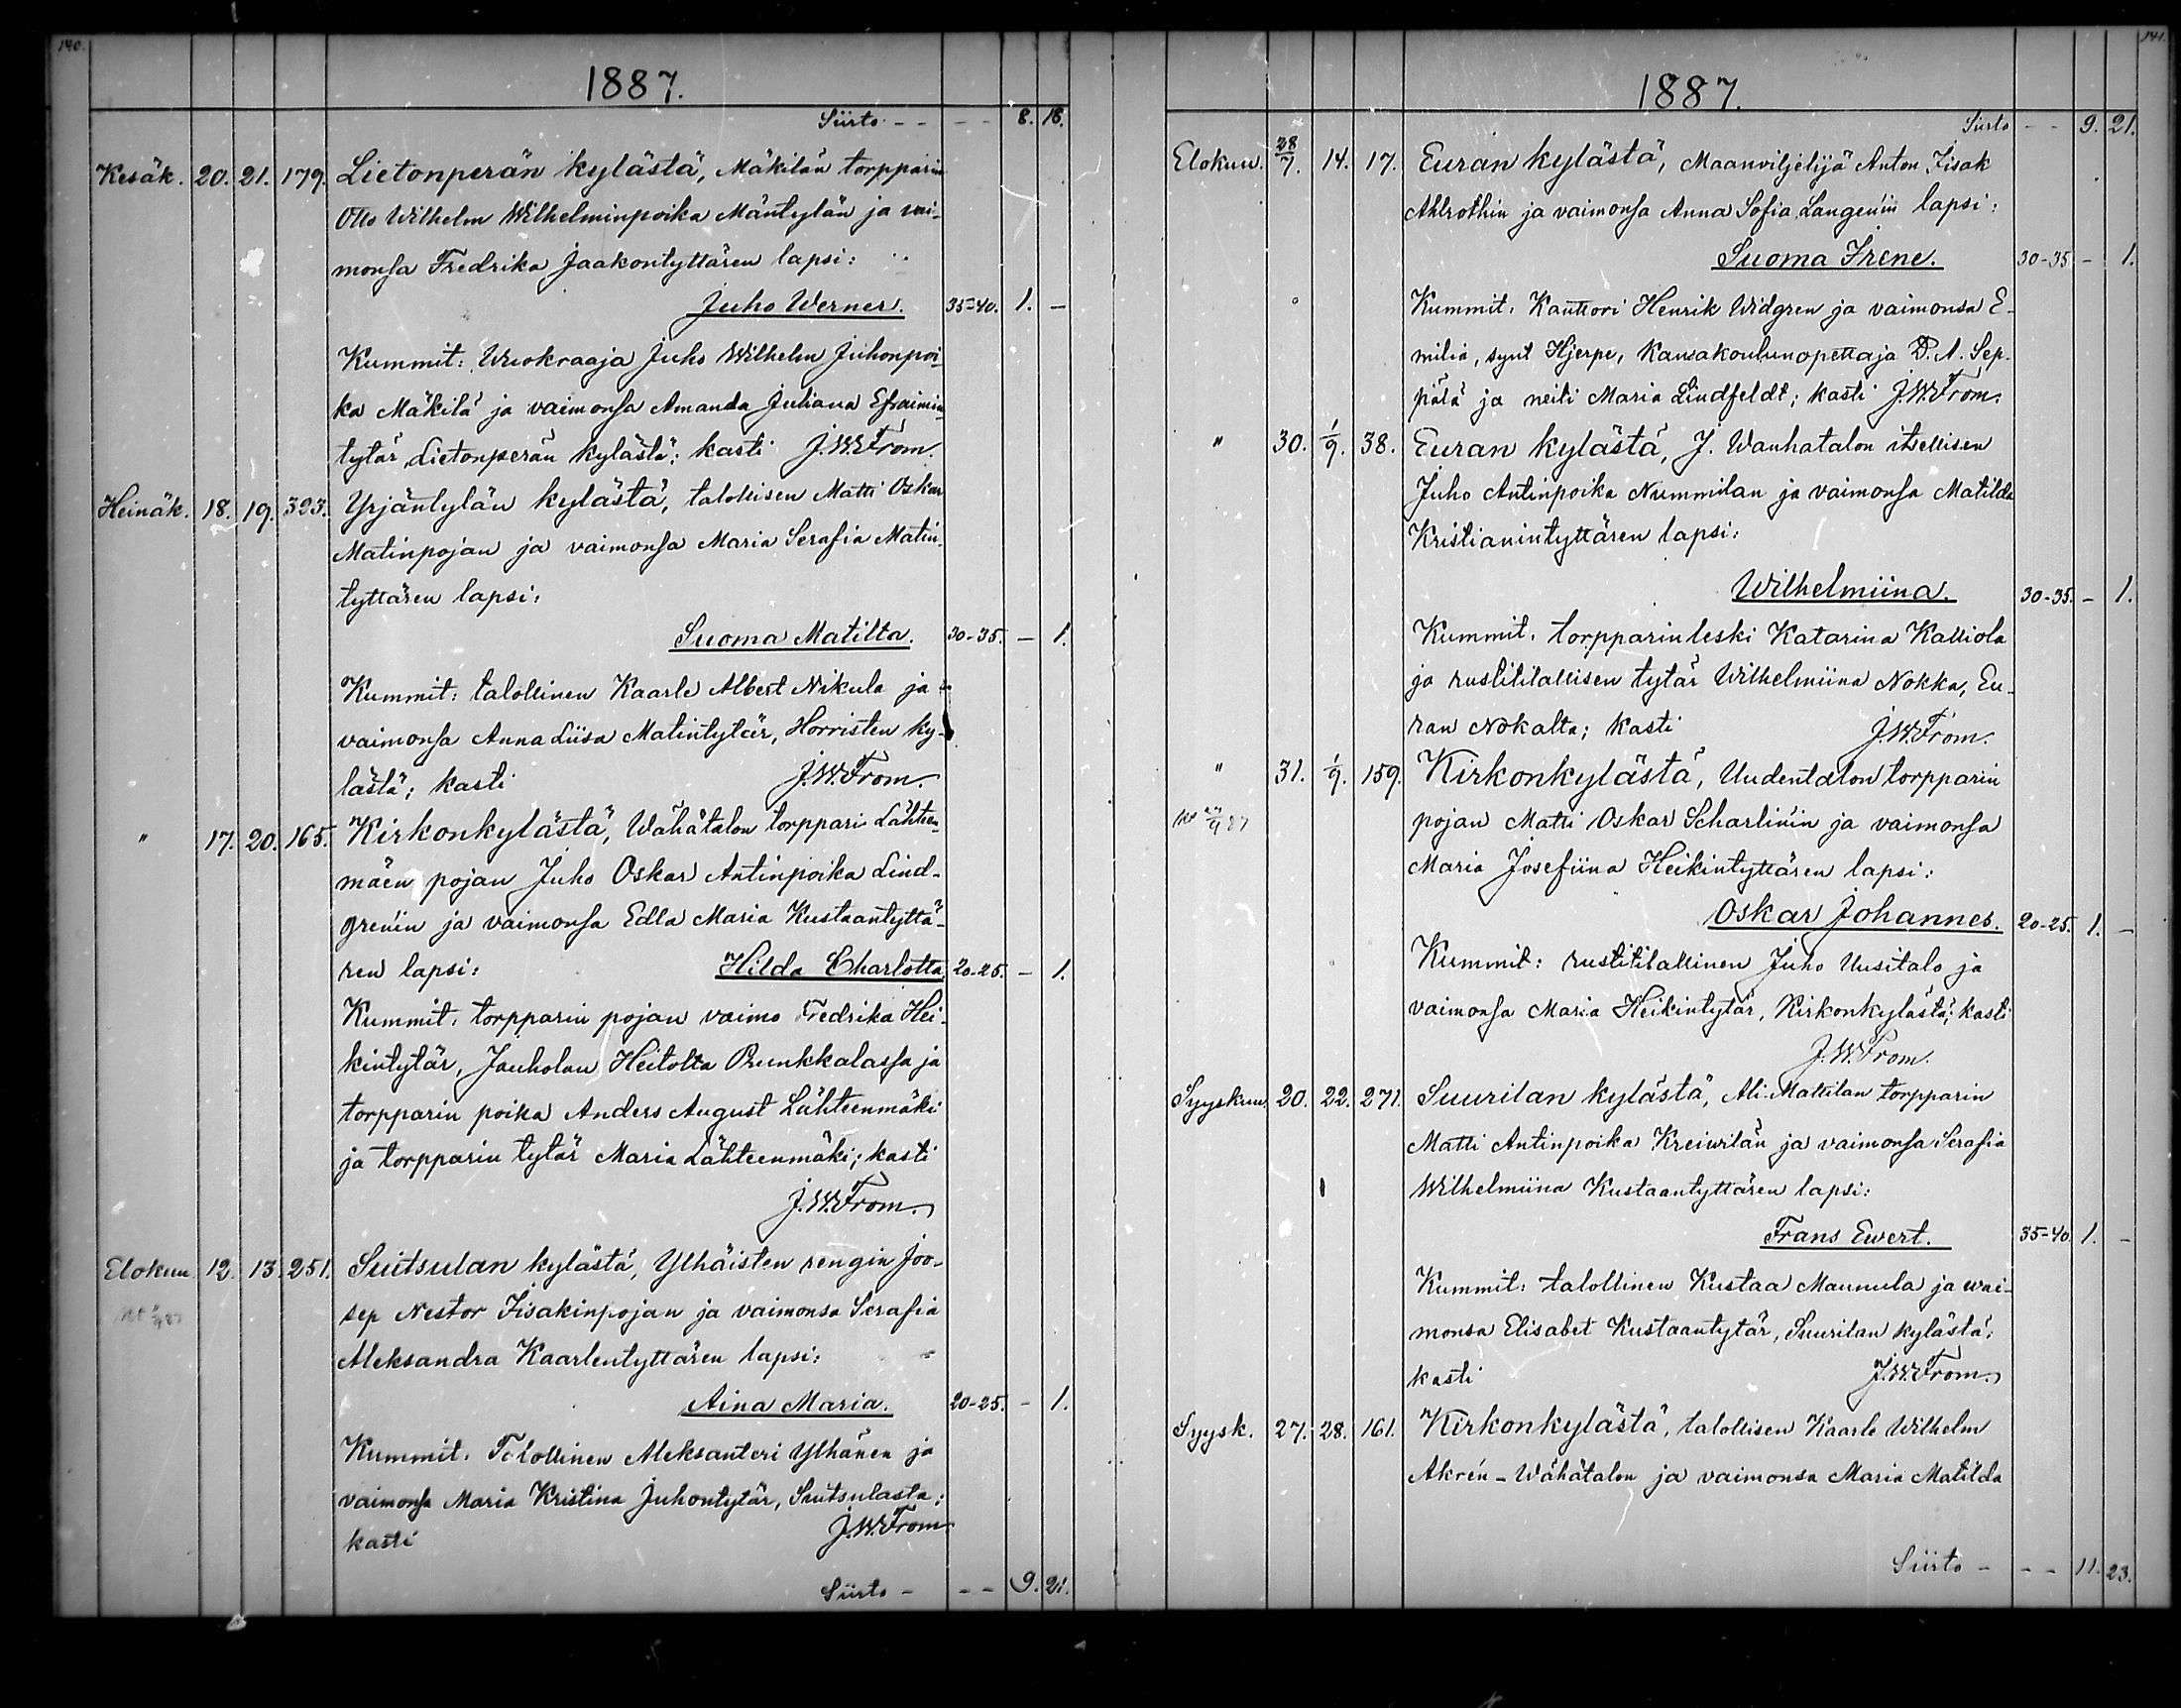 140.
1887.
Siirto - - - - 8. 18.
Kesäk. 20. 21. 179. Lietonperän kylästä, Mäkilän torpparin
Otto Wilhelm Wilhelminpoika Mäntylän ja vai-
monsa Fredrika Jaakontyttären lapsi:
Juho Werner. 35-40. 1. -
Kummit: Wuokraaja Juho Wilhelm Juhonpoi-
ka Mäkilä ja vaimonsa Amanda Juliana Efraimin
tytär, Lietonperän kylästä; kasti J.W.From.
Heinäk. 18. 19. 323. Yrjäntylän kylästä, talollisen Matti Oskar
Matinpojan ja vaimonsa Maria Serafia Matin-
tyttären lapsi:
Suoma Matilta. 30-35. - 1.
Kummit: talollinen Kaarle Albert Nikula ja
vaimonsa Anna Liisa Matintytär, Horristen ky-
lästä; kasti J.W.From.
" 17. 20. 165. Kirkonkylästä, Wähätalon torppari Lähteen-
mäen pojan Juho Oskar Antinpoika Lind-
gren'in ja vaimonsa Edla Maria Kustaantyttä-
ren lapsi: Hilda Charlotta 20-25. - 1.
Kummit: torpparin pojan vaimo Fredrika Hei-
kintytär, Jauholan Heitolta Punkkalassa ja
torpparin poika Anders August Lähteenmäki
ja torpparin tytär Maria Lähteenmäki; kasti
J.W.From.
Elokuu 12. 13. 251. Suitsulan kylästä, Ylhäisten rengin Joo-
sep Nestor Iisakinpojan ja vaimonsa Serafia
Aleksandra Kaarlentyttären lapsi:
Aina Maria. 20-25. - 1.
Kummit: Talollinen Aleksanteri Ylhänen ja
vaimonsa Maria Kristina Juhontytär, Suitsulasta;
kasti J.W.From
Siirto - - - 9. 21.
141.
1887.
Siirto - - 9. 21.
Elokuu. 28/7. 14. 17. Euran kylästä, Maanviljelijä Anton Iisak
Ahlrothin ja vaimonsa Anna Sofia Langen'in lapsi:
Suoma Irene. 30-35 - 1.
Kummit: Kanttori Henrik Widgren ja vaimonsa E-
milia, synt Hjerpe, Kansakoulunopettaja D. A. Sep-
pälä ja neiti Maria Lindfeldt; kasti J.W.From.
" 30. 1/9. 38. Euran kylästä, J. Wanhatalon itsellisen
Juho Antinpoika Nummilan ja vaimonsa Matilda
Kristianintyttären lapsi:
Wilhelmiina. 30-35. - 1.
Kummit: torpparin leski Katarina Kalliola
ja rustitilallisen tytär Wilhelmiina Nokka, Eu-
ran Nokalta; kasti J.W.From.
" 31. 1/9. 159. Kirkonkylästä, Uudentalon torpparin
pojan Matti Oskar Scharlin'in ja vaimonsa
Maria Josefiina Heikintyttären lapsi:
Oskar Johannes. 20-25. 1. -
Kummit: rustitilallinen Juho Uusitalo ja
vaimonsa Maria Heikintytär, Kirkonkylästä; kasti
J.W.From.
Syyskuu. 20. 22. 271. Suurilan kylästä, Ali-Mattilan torpparin
Matti Antinpoika Kreiwilän ja vaimonsa Serafia
Wilhelmiina Kustaantyttären lapsi:
Frans Ewert. 35-40 1. -
Kummit: talollinen Kustaa Maunula ja wai-
monsa Elisabet Kustaantytär, Suurilan kylästä;
kasti J.W.From.
Syysk. 27. 28. 161. Kirkonkylästä, talollisen Kaarle Wilhelm
Akrén-Wähätalon ja vaimonsa Maria Matilda
Siirto - - - 11. 23.